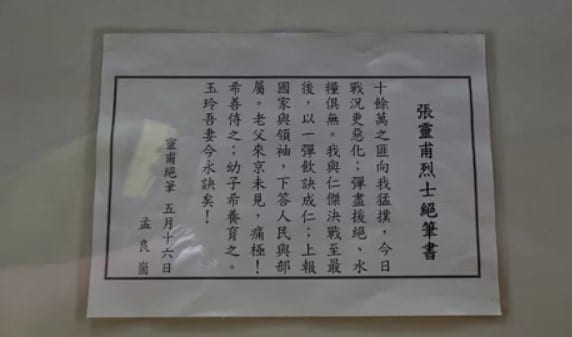 張靈甫烈士絕筆書
十餘萬之匪向我猛撲，今日
戰況更惡化；彈盡援絕、水
糧俱無。我與仁傑決戰至最
後，以一彈飲訣成仁；上報
國家與領袖，下答人民與部
屬。老父來京未見，痛極！
希善侍之；幼子希養育之。
玉玲吾妻今永訣矣！
靈甫絕筆 五月十六日
孟良崮